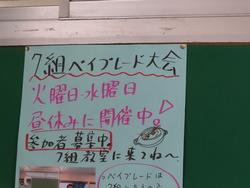 7組ベイブレード大会
火曜日・水曜日
昼休みに開催中。!
参加者募集中。
7組教室に来てね〜
ベイブレードは